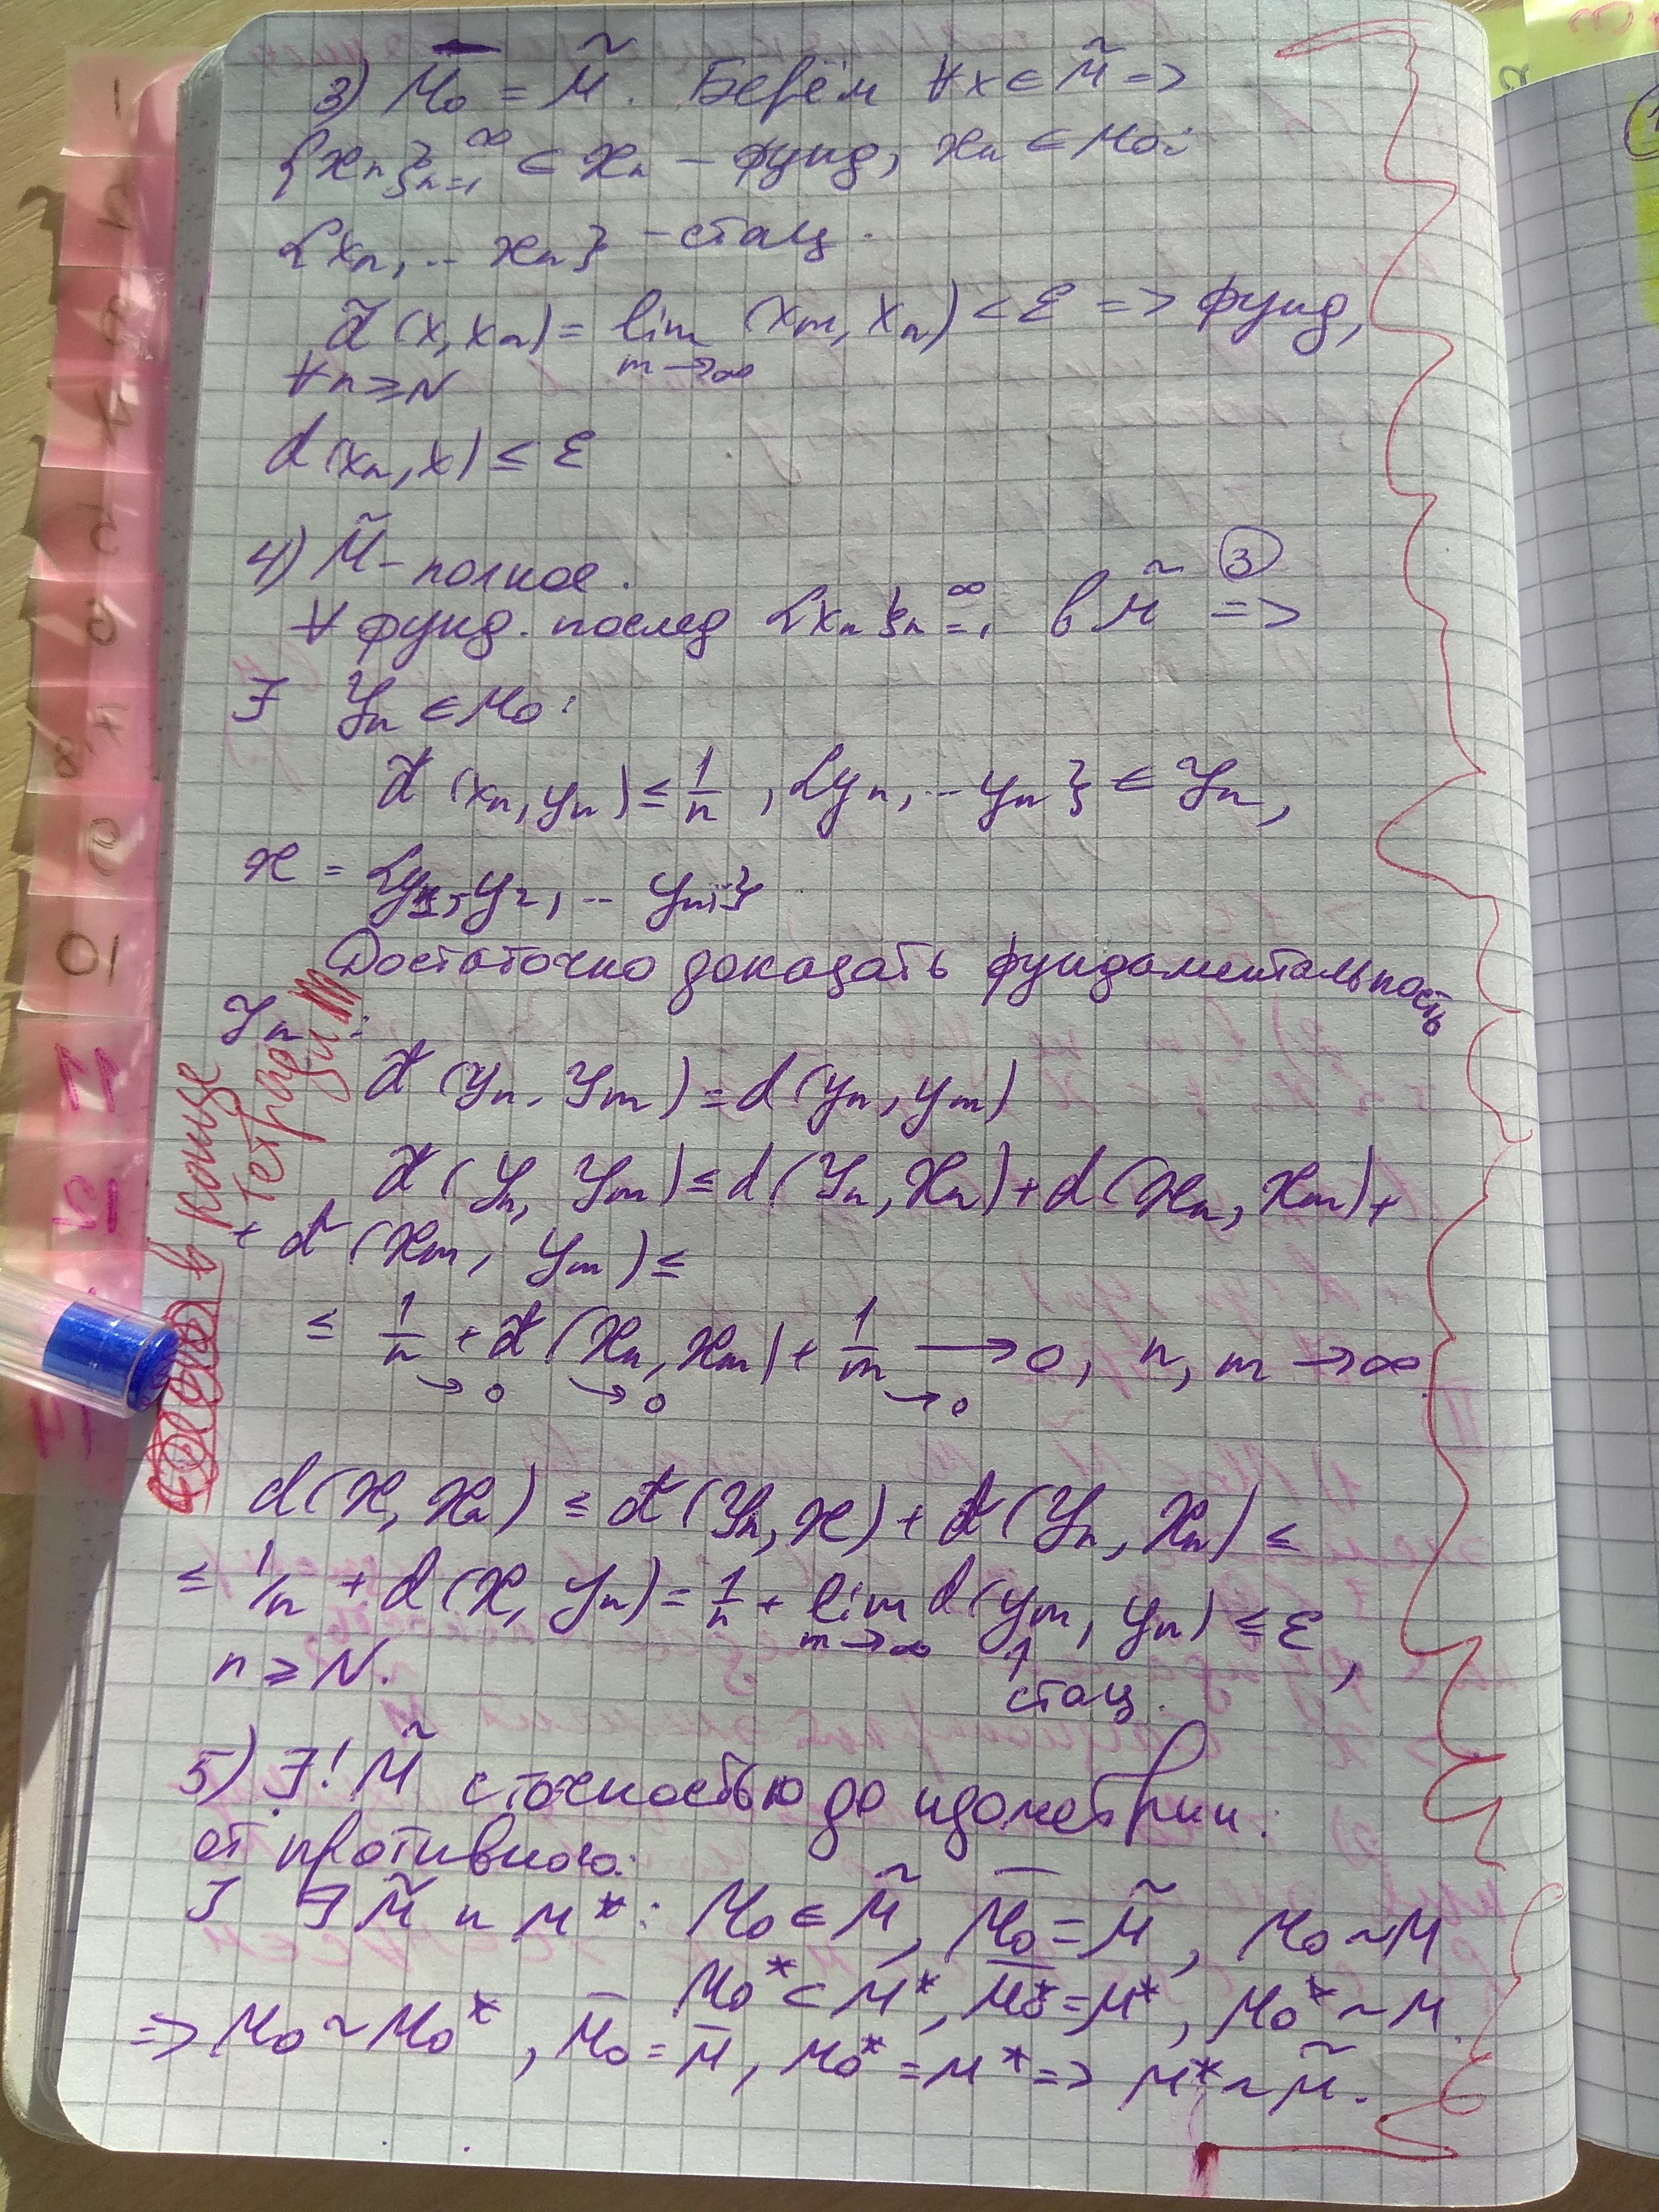 3) M̅₀ = M̃. Берём ∀x ∈ M̃ =>
{xₙ}ₙ₌₁^∞ ∈ xₙ – фунд, xₙ ∈ M₀:
{xₙ, .. xₙ} – стац.
d̃(x, xₙ) = lim (xₘ, xₙ) < ε => фунд,
m→∞
∀n ≥ N
d(xₙ, x) ≤ ε
4) M̃ – полное.
∀ фунд. послед {xₙ}ₙ₌₁^∞ в M̃ =>
③
∃ yₙ ∈ M₀:
d̃(xₙ, yₙ) ≤ 1/n, {yₙ, .. yₙ} ∈ yₙ,
x = {y₁, y₂, .. yₙ..}
Достаточно доказать фундаментальность
yₙ:
d̃(yₙ, yₘ) = d(yₙ, yₘ)
d̃(yₙ, yₘ) ≤ d(yₙ, xₙ) + d(xₙ, xₘ) +
+ d̃(xₘ, yₘ) ≤
≤ 1/n + d̃(xₙ, xₘ) + 1/m → 0, n, m → ∞
→0 →0 →0
d(x, xₙ) ≤ d̃(yₙ, x) + d̃(yₙ, xₙ) ≤
≤ 1/n + d(x, yₙ) = 1/n + lim d(yₘ, yₙ) ≤ ε,
m→∞ ↑
n ≥ N. стац.
5) ∃! M̃ с точностью до изометрии:
от противного:
] ∃ M̃ и M*: M₀ ∈ M̃, M̅₀ = M̃, M₀ ~ M
M₀* ⊂ M*, M̅₀* = M*, M₀* ~ M.
=> M₀ ~ M₀*, M̅₀ = M̅, M₀* = M* => M* ~ M̃.
в конце
тетради
10
11
12